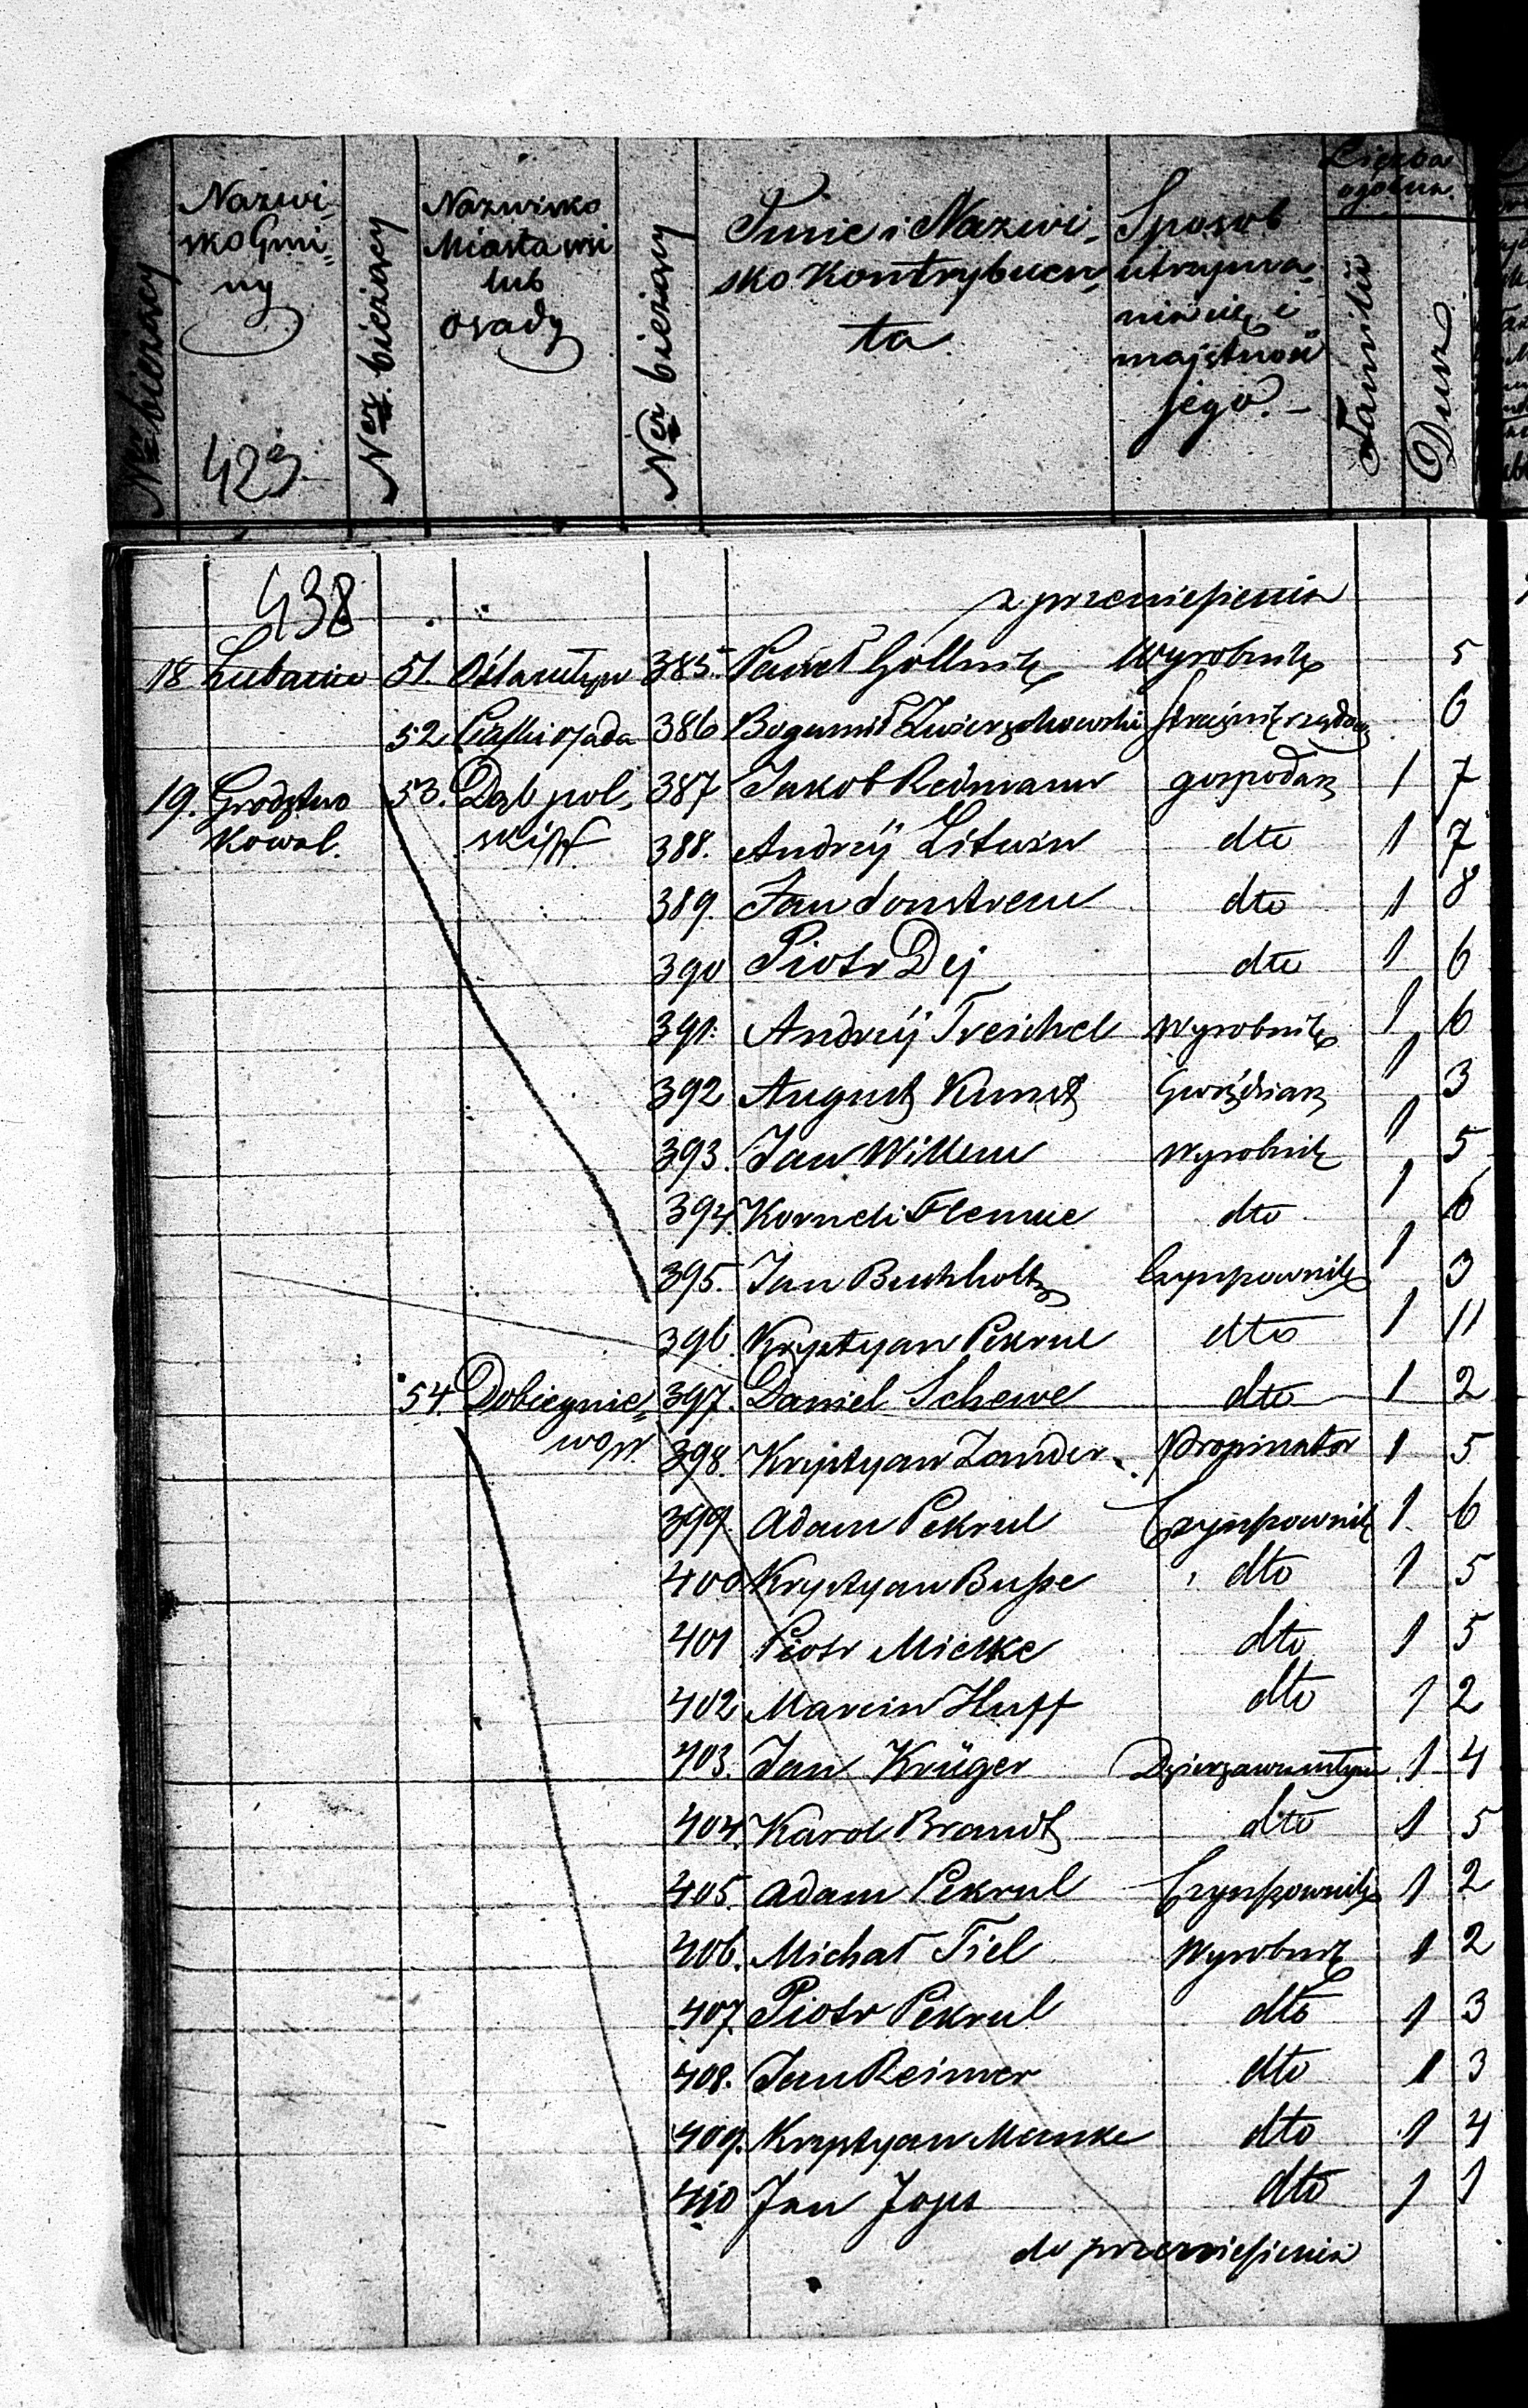 Nr bieżący
Nazwi-
sko Gmi-
ny
423.
Ner bieżący
Nazwisko
Miasta wsi
lub
osady
Ner bieżący
Imie i Nazwi-
sko Kontrybuen-
ta
Sposob
utrzyma-
nia się i
majętność
jego.-
Liczba
ogólna
Familii
Dusz
438
z przeniesienia
18 51. 385. Paweł Gollnik Wyrobnik 5
52 Piaski osada 386 Bogumił Zwierzchowski strażnik rządowy 6
19. Grodztwo 53. Dąb pol- 387 Jakob Redmann gospodarz 1 7
Kowal. ski w. 388. Andrzij Litwin dto 1 7
389. Jan dto 1 8
390 Piotr Dej dto 1 6
391. Andrzij Treichel Wyrobnik 1 6
392 August Kunst Gwoździarz 1 3
393. Jan Willem Wyrobnik 1 5
394. Korneli Flemke dto 1 6
395. Jan Buchholtz Czynszownik 1 3
396. Krystyan Pekrul dto 1 11
54. Dobiegnie- 397. Daniel Schewe dto 1 2
wo w. 398. Krystyan Zander Propinator 1 5
399. Adam Pekrul Czynszownik 1 6
400 Krystyan Busse dto 1 5
401 Piotr Mielke dto 1 5
402 Marcin Huff dto 1 2
403. Jan Krüger Dzierzawca młyna 1 4
404. Karol Brandt dto 1 5
405. Adam Pekrul Czynszownik 1 2
406. Michał Tiel Wyrobnik 1 2
407. Piotr Pekrul dto 1 3
408. Jan Reimer dto 1 3
409. Krystyan Manke dto 1 4
410 Jan Jops dto 1 1
do przeniesienia